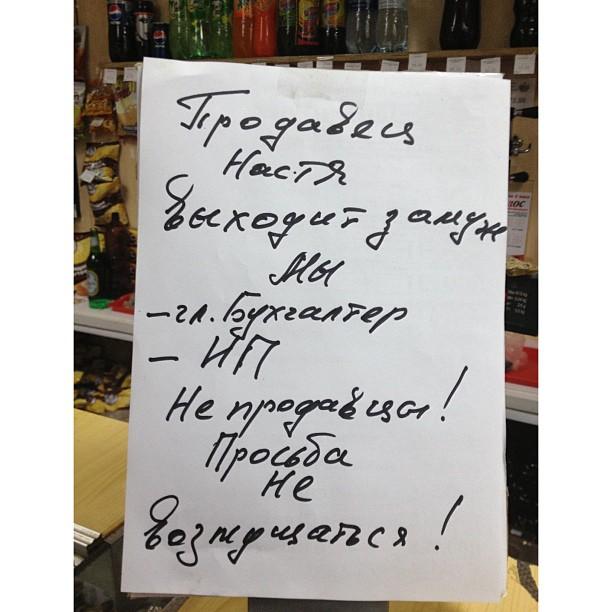 Продавец
Настя
Выходит замуж
Мы
- гл. Бухгалтер
- ИП
Не продавцы!
Просьба
Не
Возмущаться!